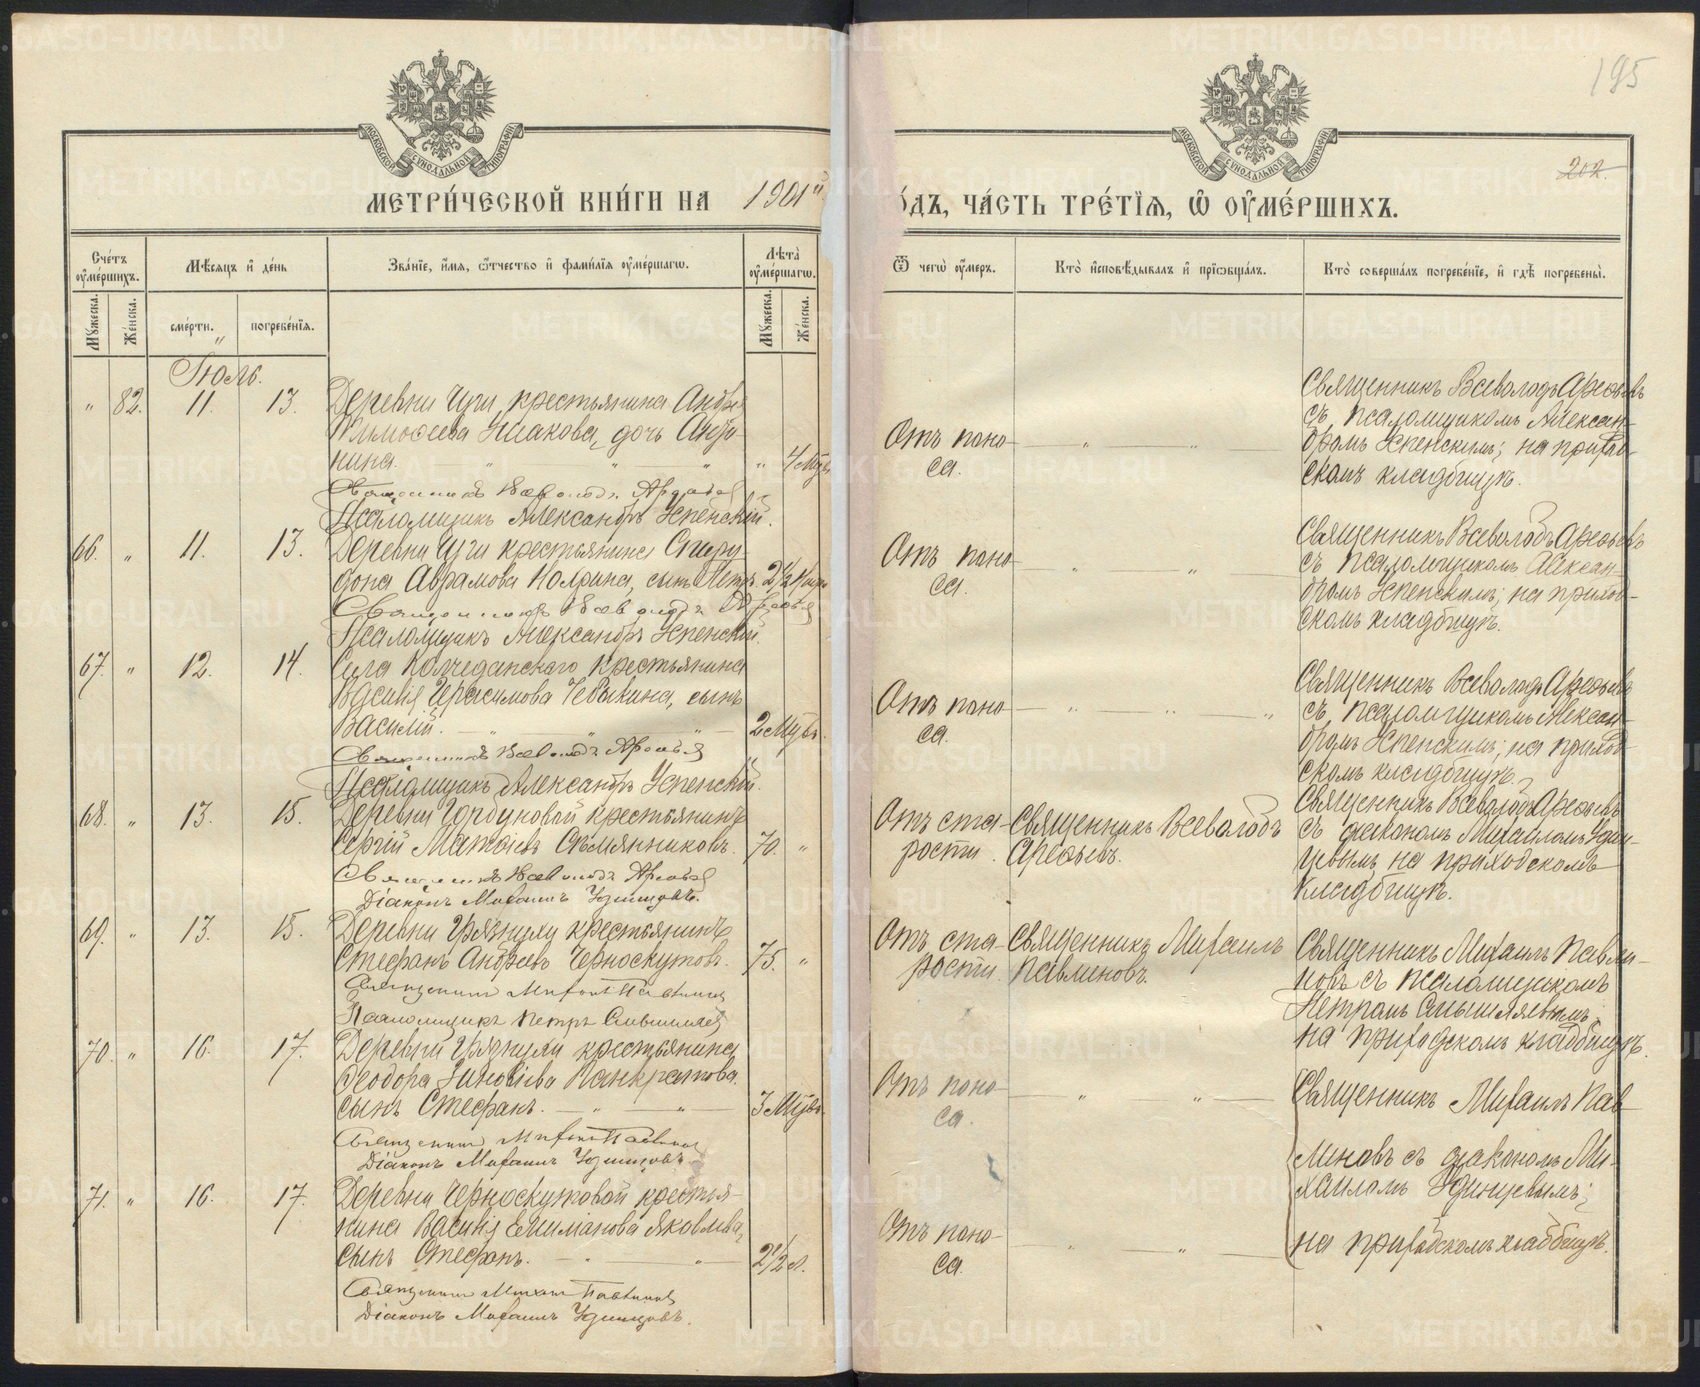 195
202.
МЕТРИ́ЧЕСКОЙ КНИ́ГИ НА 1901й
ОДЪ, ЧА́СТЬ ТРЕ́ТІѦ, Ѡ ОУМЕ́РШИХЪ.
Сче́тъ оумершихъ.
Мѣсяцъ и день
Званіе, имя, отчество и фамилія оумершагѡ.
Лѣта оумершагѡ.
Мужеска.
Женска.
смерти.
погребенія.
Мужеска.
Женска.
Ѿ чегѡ оумеръ.
Кто исповѣдывалъ и пріобщалъ.
Кто совершалъ погребеніе, и гдѣ погребены.
Іюль.
" 82. 11. 13. Деревни Чуги крестьянина Андрея
Тимоѳеева Ушакова, дочь Анто-
нина. " 4 Мѣс.
Священникъ Всеволодъ Арефьев
Псаломщикъ Александръ Успенскій.
Отъ поно-
са.
Священникъ Всеволодъ Арефьевъ
съ псаломщикомъ Алексан-
дромъ Успенскимъ; на приход-
скомъ кладбищѣ.
66. " 11. 13. Деревни Чуги крестьянина Спири-
дона Аврамова сынъ Петръ. 2½
Священникъ Всеволодъ Арефьев
Псаломщикъ Александръ Успенскій.
Отъ поно-
са.
Священникъ Всеволодъ Арефьевъ
съ псаломщикомъ Алексан-
дромъ Успенскимъ; на приход-
скомъ кладбищѣ.
67. " 12. 14. Села Колчеданскаго крестьянина
Василія Герасимова сынъ
Василій. 2 Мѣс.
Священникъ Всеволодъ Арефьев
Псаломщикъ Александръ Успенскій.
Отъ поно-
са.
Священникъ Всеволодъ Арефьевъ
съ псаломщикомъ Алексан-
дромъ Успенскимъ; на приход-
скомъ кладбищѣ.
68. " 13. 15. Деревни Горбуновой крестьянинъ
Сергій Матѳіевъ Стемянниковъ. 70. "
Священникъ Всеволодъ Арефьев
Діаконъ Михаилъ Удинцовъ.
Отъ ста-
рости.
Священникъ Всеволодъ
Арефьевъ.
Священникъ Всеволодъ Арефьевъ
съ діакономъ Михаиломъ Удин-
цевымъ, на приходскомъ
кладбищѣ.
69. " 13. 15. Деревни Грязнухи крестьянинъ
Стефанъ Андреевъ Черноскутовъ. 75. "
Священникъ Михаилъ Павлинов
Псаломщикъ Петръ Смышляев
Отъ ста-
рости.
Священникъ Михаилъ
Павлиновъ.
Священникъ Михаилъ Павли-
новъ съ псаломщикомъ
Петромъ Смышляевымъ,
на приходскомъ кладбищѣ.
70. " 16. 17. Деревни Грязнухи крестьянина
Ѳеодора Зиновіева Панкратова
сынъ Стефанъ. 3 Мѣс.
Священникъ Михаилъ Павлинов
Діаконъ Михаилъ Удинцовъ.
Отъ поно-
са.
Священникъ Михаилъ Пав-
линовъ съ діакономъ Ми-
хаиломъ Удинцевымъ;
на приходскомъ кладбищѣ.
71. " 16. 17. Деревни Черноскутовой крестья-
нина Василія Емиліанова Яковлева,
сынъ Стефанъ. 2½ л.
Священникъ Михаилъ Павлинов
Діаконъ Михаилъ Удинцовъ.
Отъ поно-
са.
METRIKI.GASO-URAL.RU